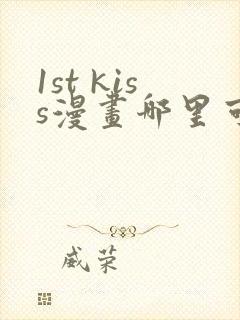 1st kis
s漫畫哪里可
威荣